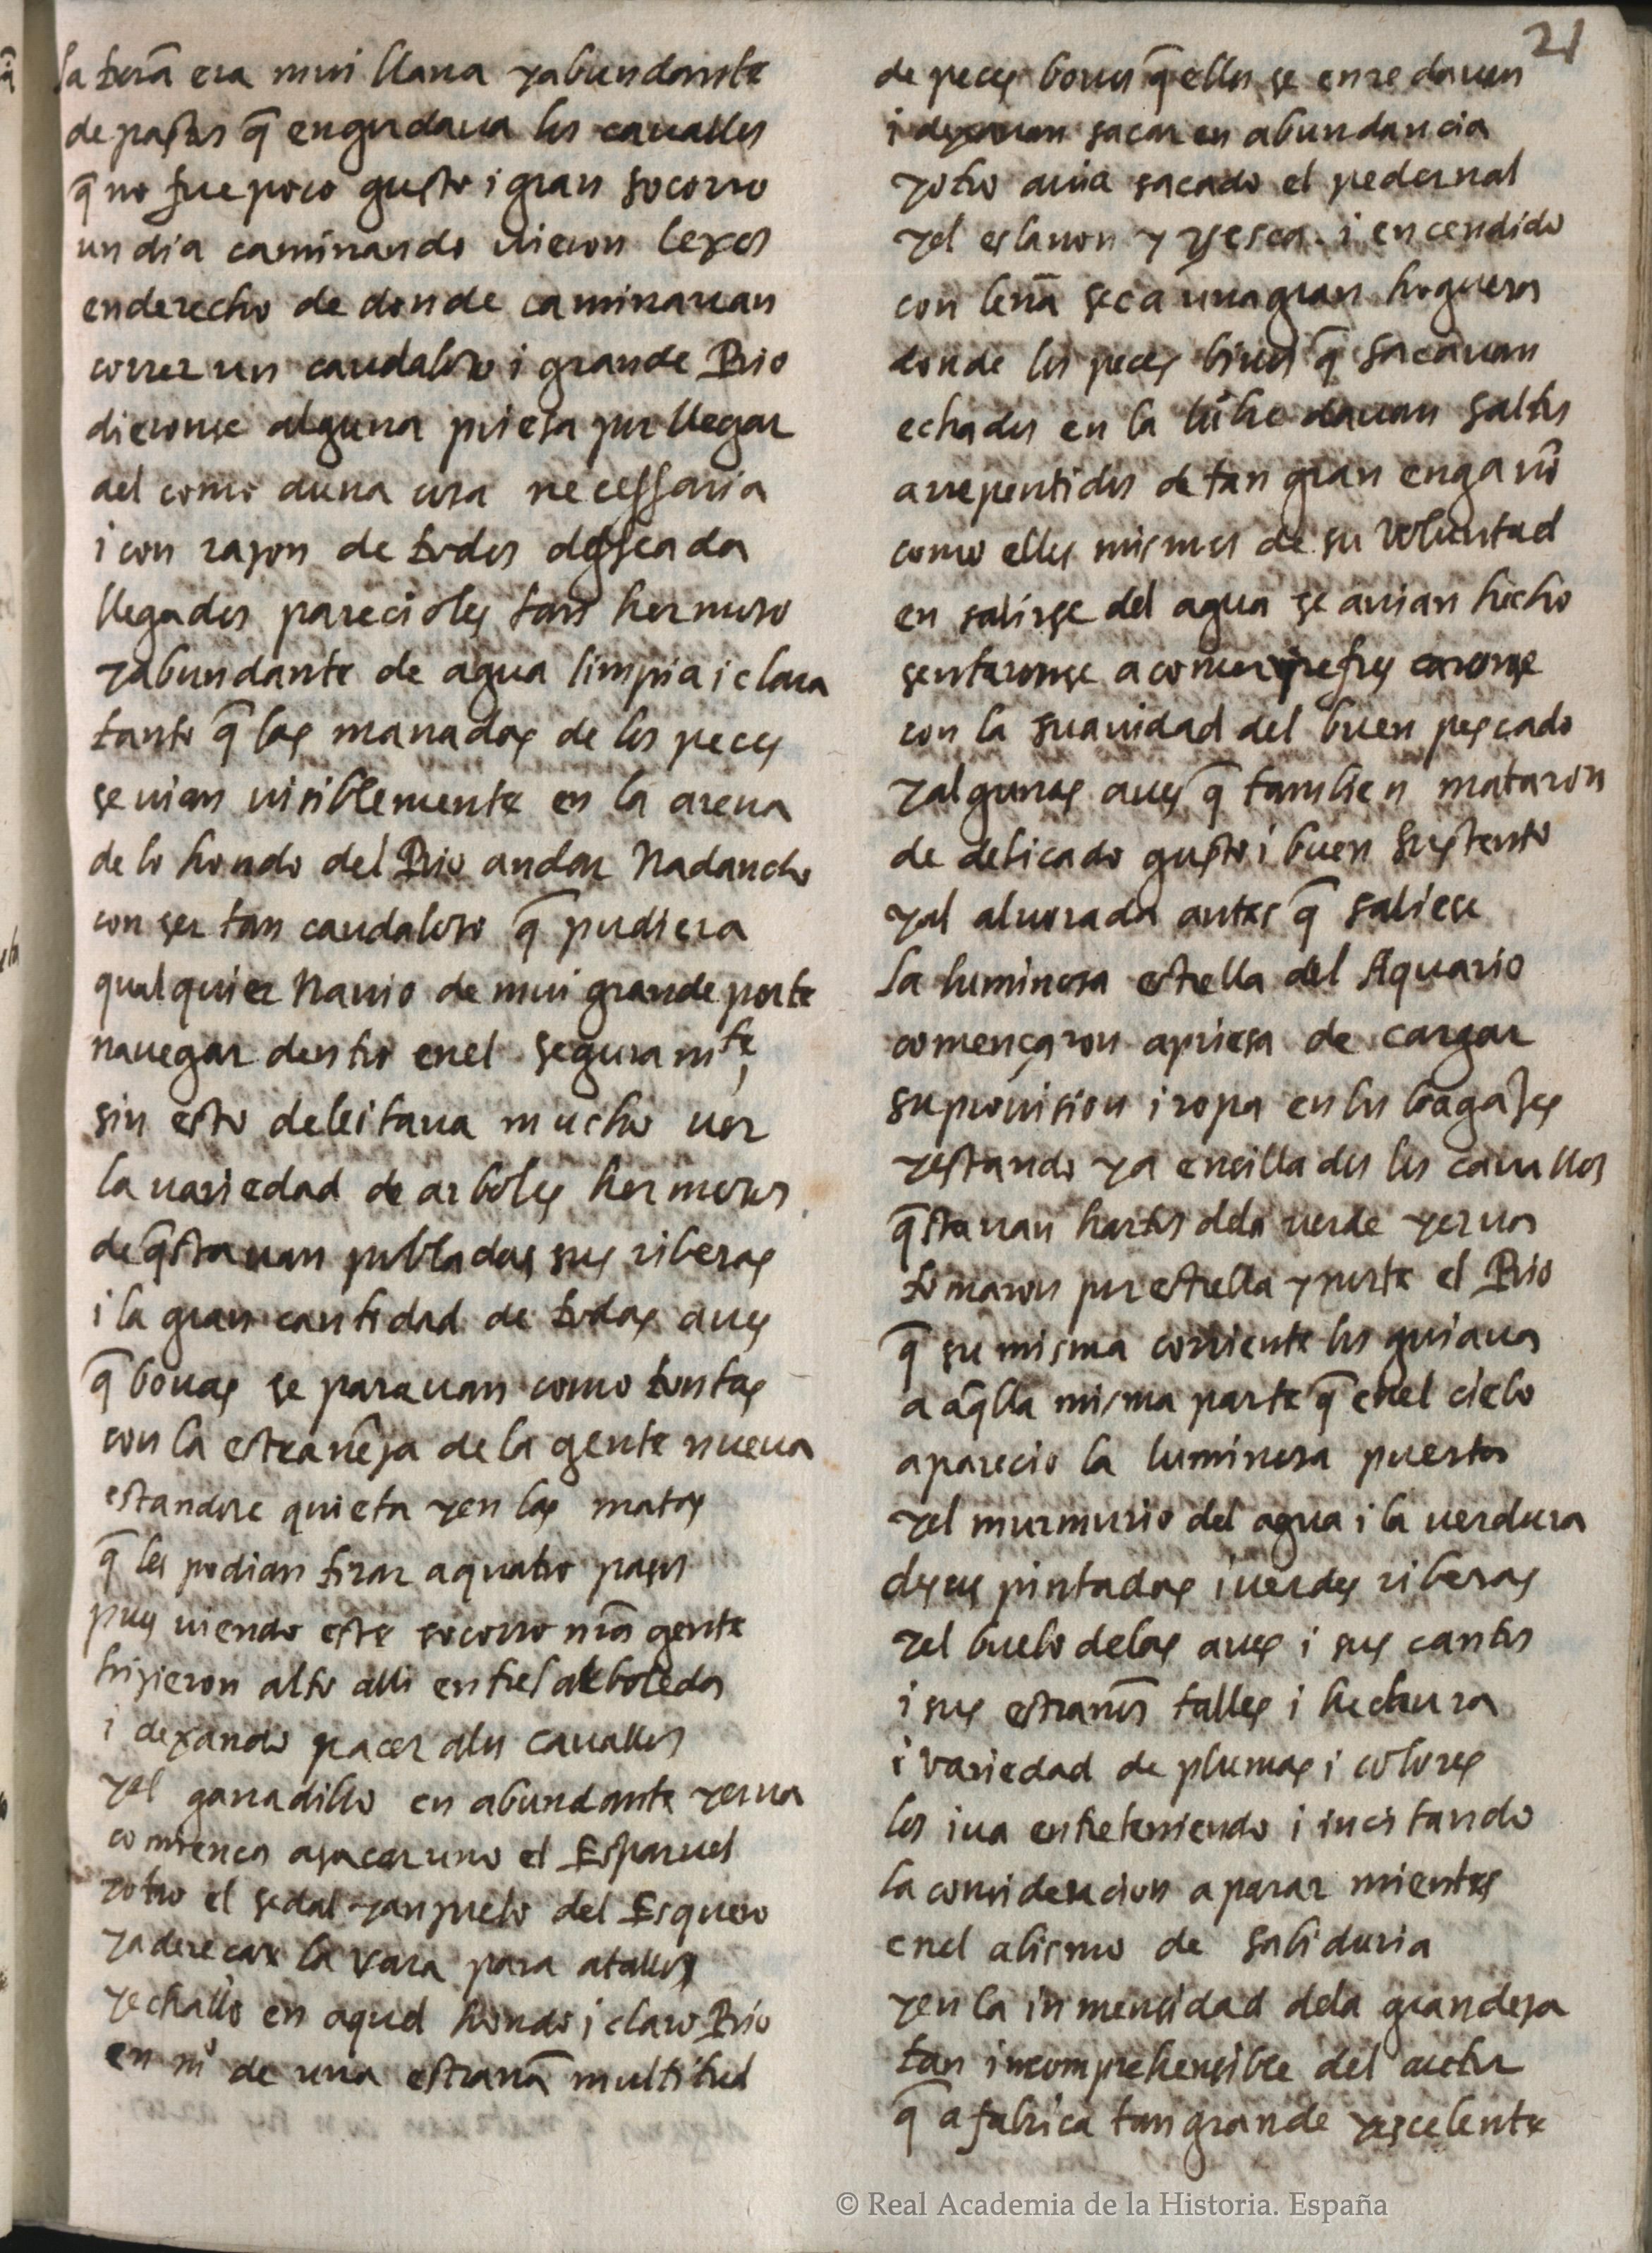 la terra era mui llana yabundante
de pastos q̃ engordaua los cauallos
q̃ no fue poco gusto i gran socorro
un dia caminando uieron lexos
enderecho de donde caminauan
correr un caudaloso i grande Rio
dieronse alguna priesa por llegar
del como duna cosa necessaria
i con razon de todos desseada
llegados parecioles tan hermoso
yabundante de agua limpia i clara
tanto q̃ las manadas de los peces
se uian uisiblemente en la arena
de lo hondo del Rio andar Nadando
con ser tan caudaloso q̃ pudiera
qualquier Nauio de mui grande porte
nauegar dentro enel seguramte,
sin esto deleitaua mucho uer
la uariedad de arboles hermosos
de q̃stauan pobladas sus riberas
i la gran cantidad de todas aues
q̃ bouas se parauan como tontas
con la estrañeza de la gente nueua
estandose quieta yen las matas
q̃ les podian tirar a quatro pasos
pues uiendo este socorro nrã gente
hizieron alto alli entrel arboleda
i dexando pacer alos cauallos
yel ganadillo en abundante yerua
comiença asacar uno el Esparuel
yotro el sedal yanzuelo del Esquero
yaderecare la vara para atallo
yechallo en aquel hondo i claro Rio
en mº de una estraña multitud
21
de peces bouos q̃ ellos se enredauan
i dexauan sacar en abundancia
yotro auia sacado el pedernal
yel eslauon y yesca. i encendido
con leña seca una gran hoguera
donde los peces biuos q̃ sacauan
echados en la lũbre dauan saltos
arrepentidos de tan gran engaño
como elles mismos de su voluntad
en salirse del agua se auian hecho
sentaronse a comer i refrescaronse
con la suauidad del buen pescado
yalgunas aues q̃ tambien mataron
de delicado gusto i buen sustento
yal aluorada antes q̃ saliese
la luminosa estrella del Aquario
començaron apriesa de cargar
suprouision i ropa en los bagajes
yestando ya ensillados los cauallos
q̃stauan hartos dela uerde yerua
tomaron por estrella y norte el Rio
q̃ su misma corriente los guiaua
a aq̃lla misma parte q̃ enel cielo
aparecio la luminosa puerta
yel murmurio del agua i la uerdura
desus pintadas i uerdes riberas
yel buelo delas aues i sus cantos
i sus estraños talles i hechura
i variedad de plumas i colores
los iua entreteniendo i incitando
la consideracion a parar mientes
enel abismo de sabiduria
yen la inmensidad dela grandeza
tan incomprehensible del auctor
q̃ a fabrica tan grande yescelente
© Real Academia de la Historia. España